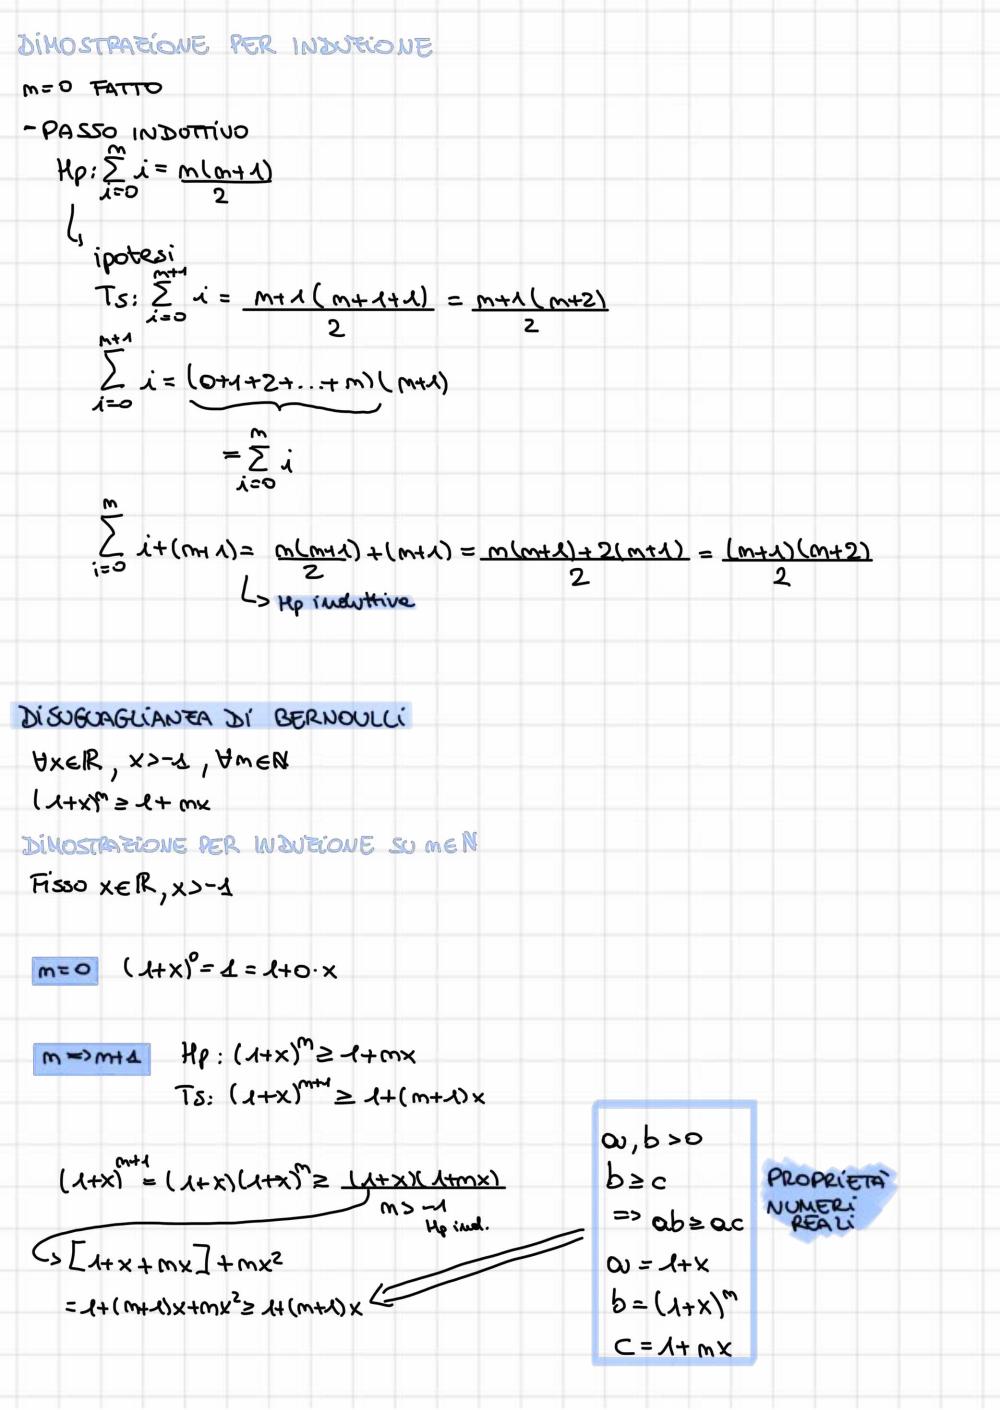 DIMOSTRAZIONE PER INDUZIONE
n=0 FATTO
- PASSO INDUTTIVO
Hp: ∑_{i=0}^{n} i = n(n+1)/2
ipotesi
Ts: ∑_{i=0}^{n+1} i = n+1(n+1+1)/2 = n+1(n+2)/2
∑_{i=0}^{n+1} i = (0+1+2+...+n)(n+1)
= ∑_{i=0}^{n} i
∑_{i=0}^{n} i+(n+1) = n(n+1)/2 + (n+1) = n(n+1)+2(n+1)/2 = (n+1)(n+2)/2
↳ Hp induttiva
DISUGUAGLIANZA DI BERNOULLI
∀x∈ℝ, x>-1, ∀n∈ℕ
(1+x)^n ≥ 1+nx
DIMOSTRAZIONE PER INDUZIONE SU n∈ℕ
Fisso x∈ℝ, x>-1
n=0 (1+x)^0 = 1 = 1+0·x
n=>n+1 Hp: (1+x)^n ≥ 1+nx
Ts: (1+x)^{n+1} ≥ 1+(n+1)x
(1+x)^{n+1} = (1+x)(1+x)^n ≥ (1+x)(1+nx)
n>-1
Hp ind.
[1+x+nx]+nx²
=1+(n+1)x+nx² ≥ 1+(n+1)x
a, b >0
b≥c
=> ab≥ac
a=1+x
b=(1+x)^n
c=1+nx
PROPRIETÀ
NUMERI
REALI